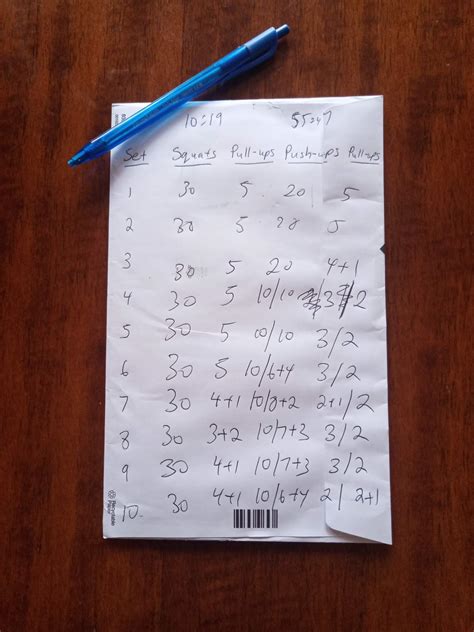 10:19 55:47
Set Squats Pull-ups Push-ups Pull-ups
1 30 5 20 5
2 30 5 20 5
3 30 5 20 4+1
4 30 5 10/10 3/2
5 30 5 10/10 3/2
6 30 5 10/6+4 3/2
7 30 4+1 10/8+2 2+1/2
8 30 3+2 10/7+3 3/2
9 30 4+1 10/7+3 3/2
10 30 4+1 10/6+4 2/2+1
Recyclable